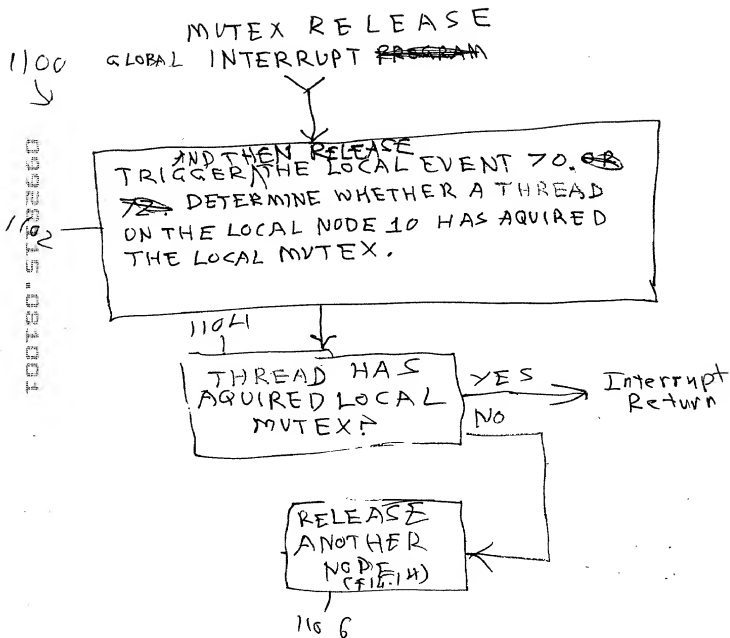 MUTEX RELEASE
1100 GLOBAL INTERRUPT PROGRAM
AND THEN RELEASE
TRIGGER THE LOCAL EVENT 70. OR
72. DETERMINE WHETHER A THREAD
1102 ON THE LOCAL NODE 10 HAS AQUIRED
THE LOCAL MUTEX.
1104
THREAD HAS
AQUIRED LOCAL
MUTEX?
YES
Interrupt
Return
NO
RELEASE
ANOTHER
NODE
(FIG.14)
1106